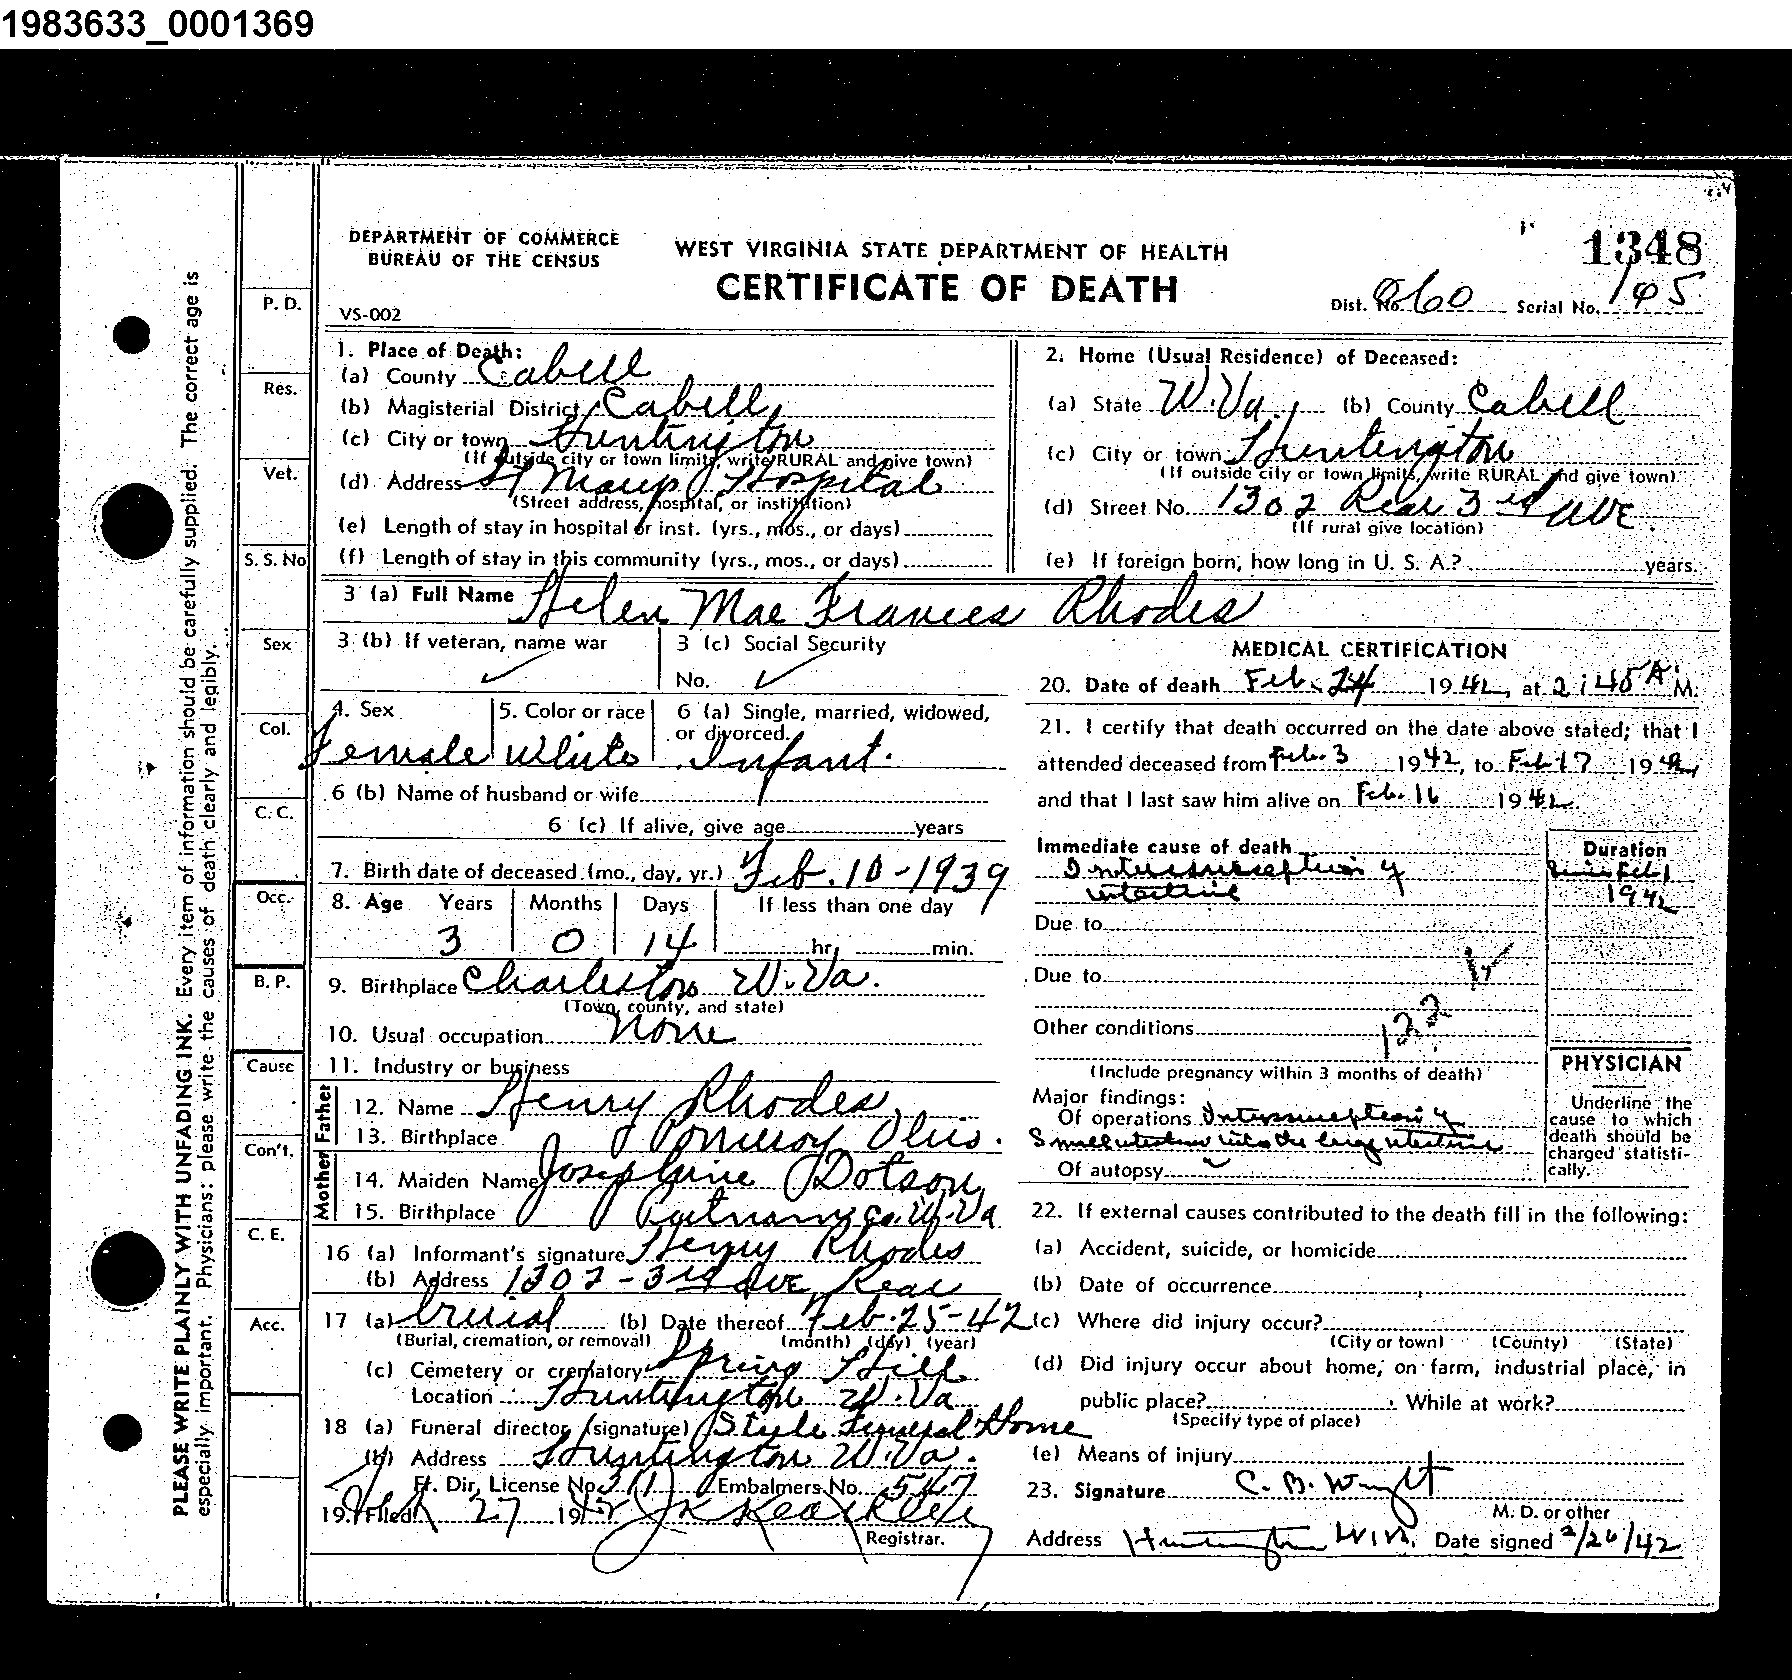 1983633_0001369
DEPARTMENT OF COMMERCE
BUREAU OF THE CENSUS
WEST VIRGINIA STATE DEPARTMENT OF HEALTH
1348
CERTIFICATE OF DEATH
VS-002
Dist. No. 060 Serial No. 165
PLEASE WRITE PLAINLY WITH UNFADING INK. Every item of information should be carefully supplied. The correct age is
especially important. Physicians: please write the causes of death clearly and legibly.
P. D.
Res.
Vet.
S. S. No
Sex
Col.
C. C.
Occ.
B. P.
Cause
Con't.
C. E.
Acc.
1. Place of Death:
(a) County Cabell
(b) Magisterial District Cabell
(c) City or town Huntington
(If outside city or town limits, write RURAL and give town)
(d) Address St Marys Hospital
(Street address, hospital, or institution)
(e) Length of stay in hospital or inst. (yrs., mos., or days)
(f) Length of stay in this community (yrs., mos., or days)
2. Home (Usual Residence) of Deceased:
(a) State W. Va. (b) County Cabell
(c) City or town Huntington
(If outside city or town limits, write RURAL and give town)
(d) Street No. 1302 Rear 3rd Ave.
(If rural give location)
(e) If foreign born, how long in U. S. A.? years.
3 (a) Full Name Helen Mae Frances Rhodes
3 (b) If veteran, name war
3 (c) Social Security
No.
4. Sex
Female
5. Color or race
White
6 (a) Single, married, widowed,
or divorced.
Infant.
6 (b) Name of husband or wife
6 (c) If alive, give age years
7. Birth date of deceased (mo., day, yr.) Feb. 10-1939
8. Age Years Months Days If less than one day
3 0 14 hr. min.
9. Birthplace Charleston W. Va.
(Town, county, and state)
10. Usual occupation None
11. Industry or business
Father
12. Name Henry Rhodes,
13. Birthplace Pomeroy Ohio.
Mother
14. Maiden Name Josephine Dotson
15. Birthplace Putnam Co. W. Va
16 (a) Informant's signature Henry Rhodes
(b) Address 1302-3rd Ave, Rear
17 (a) burial (b) Date thereof Feb-25-42
(Burial, cremation, or removal) (month) (day) (year)
(c) Cemetery or crematory Spring Hill
Location Huntington W. Va
18 (a) Funeral director (signature) Steele Funeral Home
(b) Address Huntington W. Va.
Ft. Dir. License No. 311 Embalmers No. 547
19. Filed 27 1942
Registrar.
MEDICAL CERTIFICATION
20. Date of death Feb. 24 1942, at 2:45 A M.
21. I certify that death occurred on the date above stated; that I
attended deceased from Feb. 3 1942, to Feb 17 1942,
and that I last saw him alive on Feb. 16 1942
Immediate cause of death
Intersusception of
intestine
Duration
Since Feb 1
1942
Due to
Due to
Other conditions 122
(Include pregnancy within 3 months of death)
Major findings:
Of operations Intersusception of
Small intestine into the large intestine
Of autopsy
PHYSICIAN
Underline the
cause to which
death should be
charged statisti-
cally.
22. If external causes contributed to the death fill in the following:
(a) Accident, suicide, or homicide
(b) Date of occurrence
(c) Where did injury occur?
(City or town) (County) (State)
(d) Did injury occur about home, on farm, industrial place, in
public place? While at work?
(Specify type of place)
(e) Means of injury
23. Signature C. B. Wright
M. D. or other
Address Huntington W. Va. Date signed 2/26/42